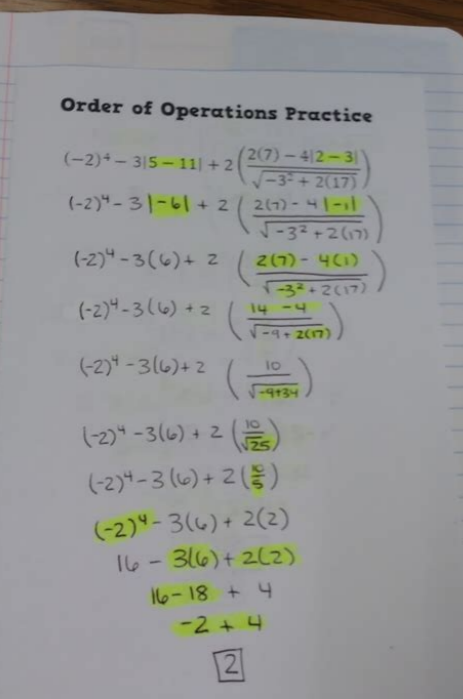 Order of Operations Practice
(-2)⁴ - 3|5 - 11| + 2((2(7) - 4|2 - 3|)/√(-3² + 2(17)))
(-2)⁴ - 3|-6| + 2((2(7) - 4|-1|)/√(-3² + 2(17)))
(-2)⁴ - 3(6) + 2((2(7) - 4(1))/√(-3² + 2(17)))
(-2)⁴ - 3(6) + 2((14 - 4)/√(-9 + 2(17)))
(-2)⁴ - 3(6) + 2(10/√(-9+34))
(-2)⁴ - 3(6) + 2(10/√25)
(-2)⁴ - 3(6) + 2(10/5)
(-2)⁴ - 3(6) + 2(2)
16 - 3(6) + 2(2)
16 - 18 + 4
-2 + 4
2